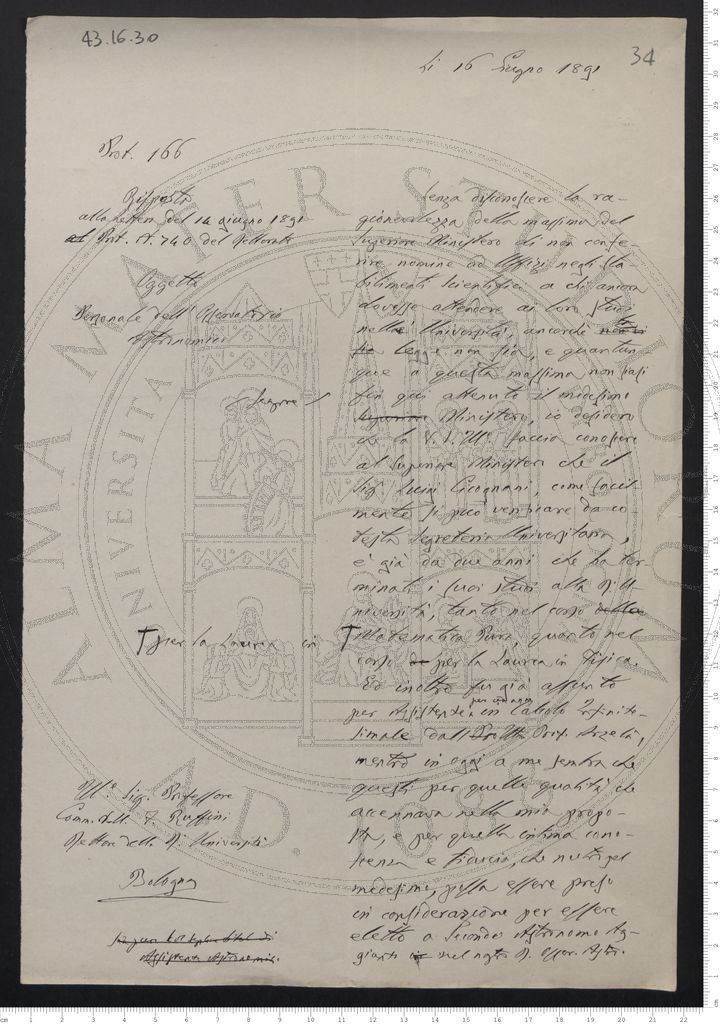 43.16.30
34
Li 16 Giugno 1891
Prot. 166
Risposta
alla lettera del 14 giugno 1891
al Prot. N. 740 del Rettorato
Oggetto
Personale dell'Osservatorio
Astronomico
Senza disconoscere la ra-
gionevolezza della massima del
Superiore Ministero di non confe-
rire nomine ad Uffizi negli Sta-
bilimenti Scientifici a chi ancora
dovesse attendere ai loro studi
nelle Università, ancorchè
legge non sia, e quantun
que a questa massima non siasi
fin qui attenuto il medesimo
Superiore Ministero, io desidero
che la S. V. Ill. faccia conoscere
al Superiore Ministero che il
Sig. Luigi Cicognani, come facil-
mente si può verificare da co-
desta Segreteria Universitaria,
è già da due anni che ha ter
minati i suoi studi alla R. U-
niversità, tanto nel corso della
† per la Laurea in † Matematica Pura, quanto nel
corso per la Laurea in Fisica.
Ed inoltre fu già assunto
per un anno
per Assistente in Calcolo Infinite-
simale dall' Prof. Arzelà,
mentre in oggi a me sembra che
questi per quelle qualità che
accennava nella mia propo-
sta, e per quella intima cono-
scenza e fiducia, che nutro pel
medesimo, possa essere preso
in considerazione per essere
eletto a Secondo Astronomo Ag-
giunto nel nostro R. Osser. Astr.
Ill. Sig. Professore
Comm. F. Ruffini
Rettore della R. Università
Bologna
Assistente Astronomico.